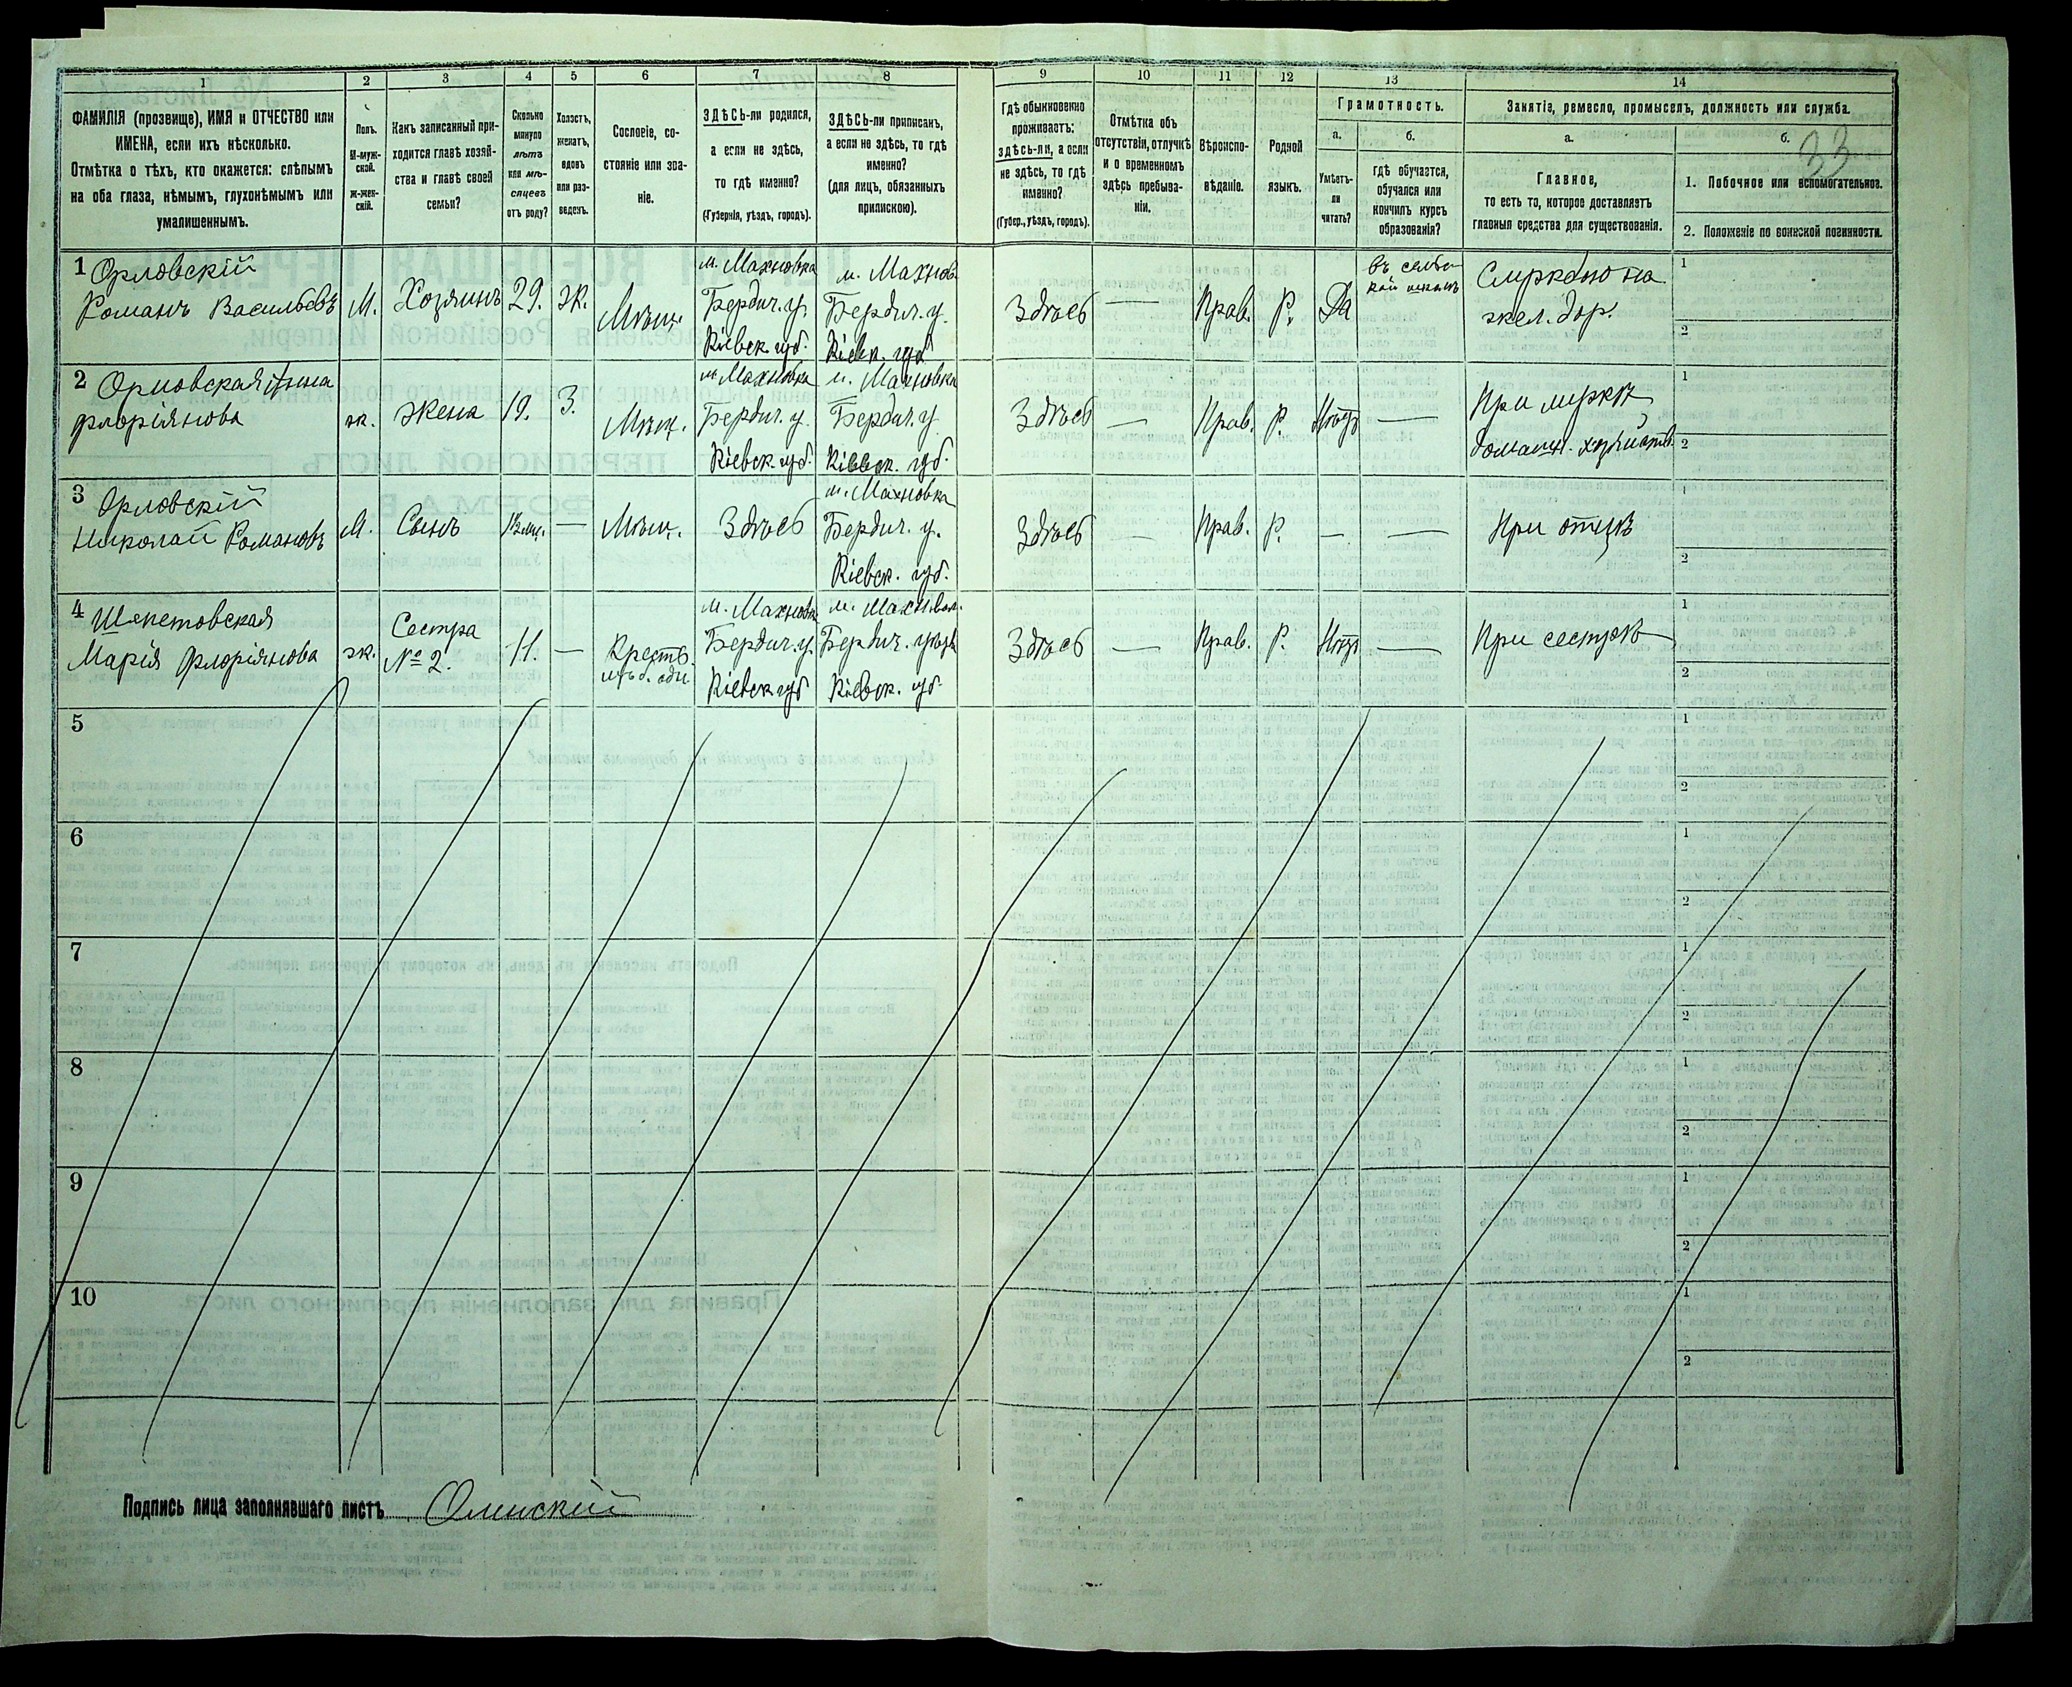 1
2
3
4
5
6
7
8
9
10
11
12
13
14
ФАМИЛІЯ (прозвище), ИМЯ и ОТЧЕСТВО или
ИМЕНА, если ихъ нѣсколько.
Отмѣтка о тѣхъ, кто окажется: слѣпымъ
на оба глаза, нѣмымъ, глухонѣмымъ или
умалишеннымъ.
Полъ.
М-муж-
ской.
Ж-жен-
скій.
Какъ записанный при-
ходится главѣ хозяй-
ства и главѣ своей
семьи?
Сколько
минуло
лѣтъ
или мѣ-
сяцевъ
отъ роду?
Холостъ,
женатъ,
вдовъ
или раз-
веденъ.
Сословіе, со-
стояніе или зва-
ніе.
ЗДѢСЬ-ли родился,
а если не здѣсь,
то гдѣ именно?
(Губернія, уѣздъ, городъ).
ЗДѢСЬ-ли приписанъ,
а если не здѣсь, то гдѣ
именно?
(для лицъ, обязанныхъ
припискою).
Гдѣ обыкновенно
проживаетъ:
здѣсь-ли, а если
не здѣсь, то гдѣ
именно?
(Губер., уѣздъ, городъ).
Отмѣтка объ
отсутствіи, отлучкѣ
и о временномъ
здѣсь пребыва-
ніи.
Вѣроиспо-
вѣданіе.
Родной
языкъ.
Грамотность.
а.
б.
Умѣетъ-
ли
читать?
гдѣ обучается,
обучался или
кончилъ курсъ
образованія?
Занятіе, ремесло, промыселъ, должность или служба.
а.
б.
33
Главное,
то есть то, которое доставляетъ
главныя средства для существованія.
1. Побочное или вспомогательное.
2. Положеніе по воинской повинности.
1 Орловскій
Романъ Васильевъ
М.
Хозяинъ
29.
ж.
Мѣщ.
м. Махновка
Бердич. у.
Кіевск. губ.
м. Махнов.
Бердич. у.
Кіевк. губ.
Здѣсь
—
Прав.
Р.
Да
въ сельс
кой школѣ
жел. дор.
1
2
2 Орловская Анна
Флоріянова
ж.
Жена
19.
З.
Мѣщ.
м. Махновка
Бердич. у.
Кіевск. губ.
м. Махновка
Бердич. у.
Кіевск. губ.
Здѣсь
—
Прав.
Р.
Нѣтъ
—
При мужѣ
домашн. хозяйств.
1
2
3 Орловскій
Николай Романовъ
М.
Сынъ
—
Мѣщ.
Здѣсь
м. Махновка
Бердич. у.
Кіевск. губ.
Здѣсь
—
Прав.
Р.
—
—
При отцѣ
1
2
4 Шепетовская
Марія Флоріянова
ж.
Сестра
№ 2.
11.
—
Крест.
м. Махновк
Бердич. у.
Кіевск губ
м. Махновк.
Бердич. уѣзд
Кіевск. губ.
Здѣсь
—
Прав.
Р.
Нѣтъ
—
При сестрѣ
1
2
5
1
2
6
1
2
7
1
2
8
1
2
9
1
2
10
1
2
Подпись лица заполнявшаго листъ